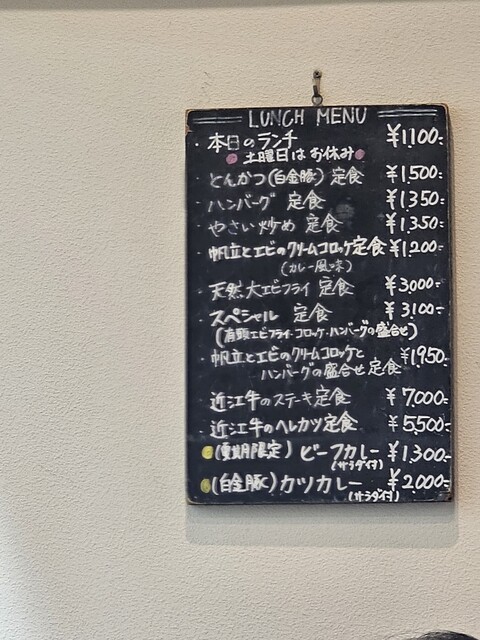 LUNCH MENU
・本日のランチ ¥1,100-
土曜日はお休み
・とんかつ(白金豚) 定食 ¥1,500-
・ハンバーグ 定食 ¥1,350-
・やさい炒め 定食 ¥1,350-
・帆立とエビのクリームコロッケ定食 ¥1,200-
(カレー風味)
・天然大エビフライ 定食 ¥3000-
・スペシャル 定食 ¥3100-
(有頭エビフライ・コロッケ・ハンバーグの盛合せ)
・帆立とエビのクリームコロッケと ¥1950-
ハンバーグの盛合せ 定食
・近江牛のステーキ定食 ¥7,000-
・近江牛のヘレカツ定食 ¥5,500-
(夏期限定) ビーフカレー ¥1,300-
(サラダ付)
(白金豚) カツカレー ¥2,000-
(サラダ付)